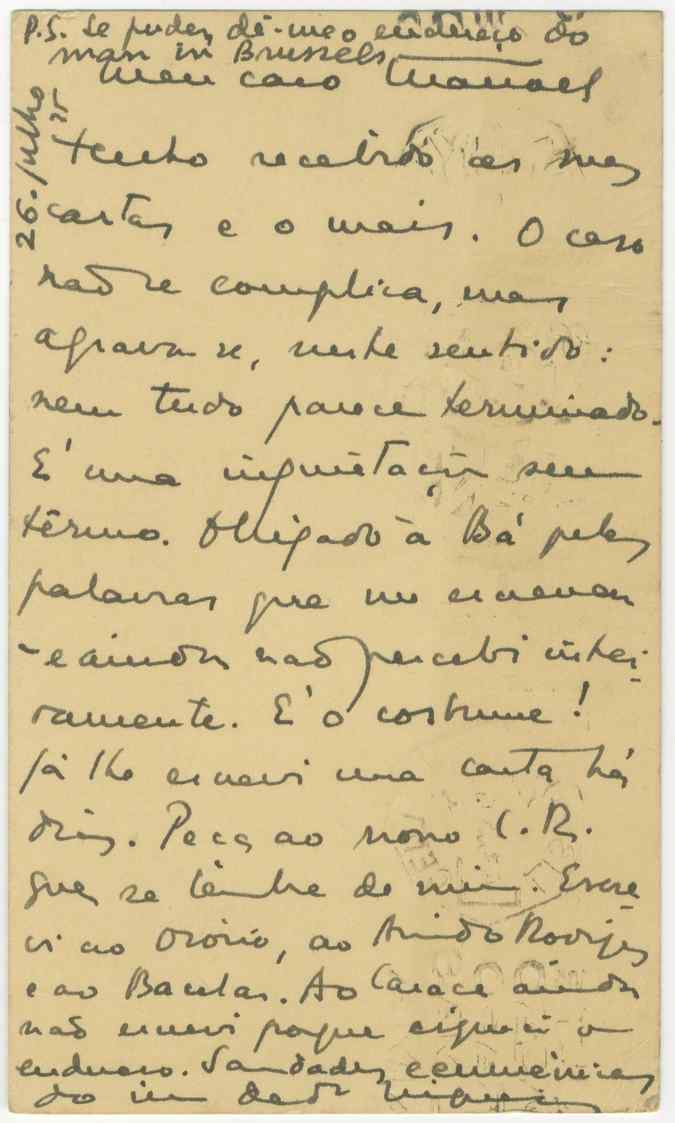 P.S. Se puder, dê-me o endereço do
man in Brussels
26. julho 75
Meu caro Manoel
tenho recebido as suas
cartas e o mais. O caso
não se complica, mas
agrava-se, neste sentido:
nem tudo parece terminado.
E' uma inquietação sem
têrmo. Obrigado à Bá pelas
palavras que me escreveu
- e ainda não percebi intei-
ramente. E' o costume!
Já lhe escrevi uma carta há
dias. Peça ao nosso C. R.
que se lembre de mim. Escre-
vi ao Osório, ao Rodrigues
e ao . Ao ainda
não escrevi porque esqueci o
endereço. Saudades ecuménicas
do